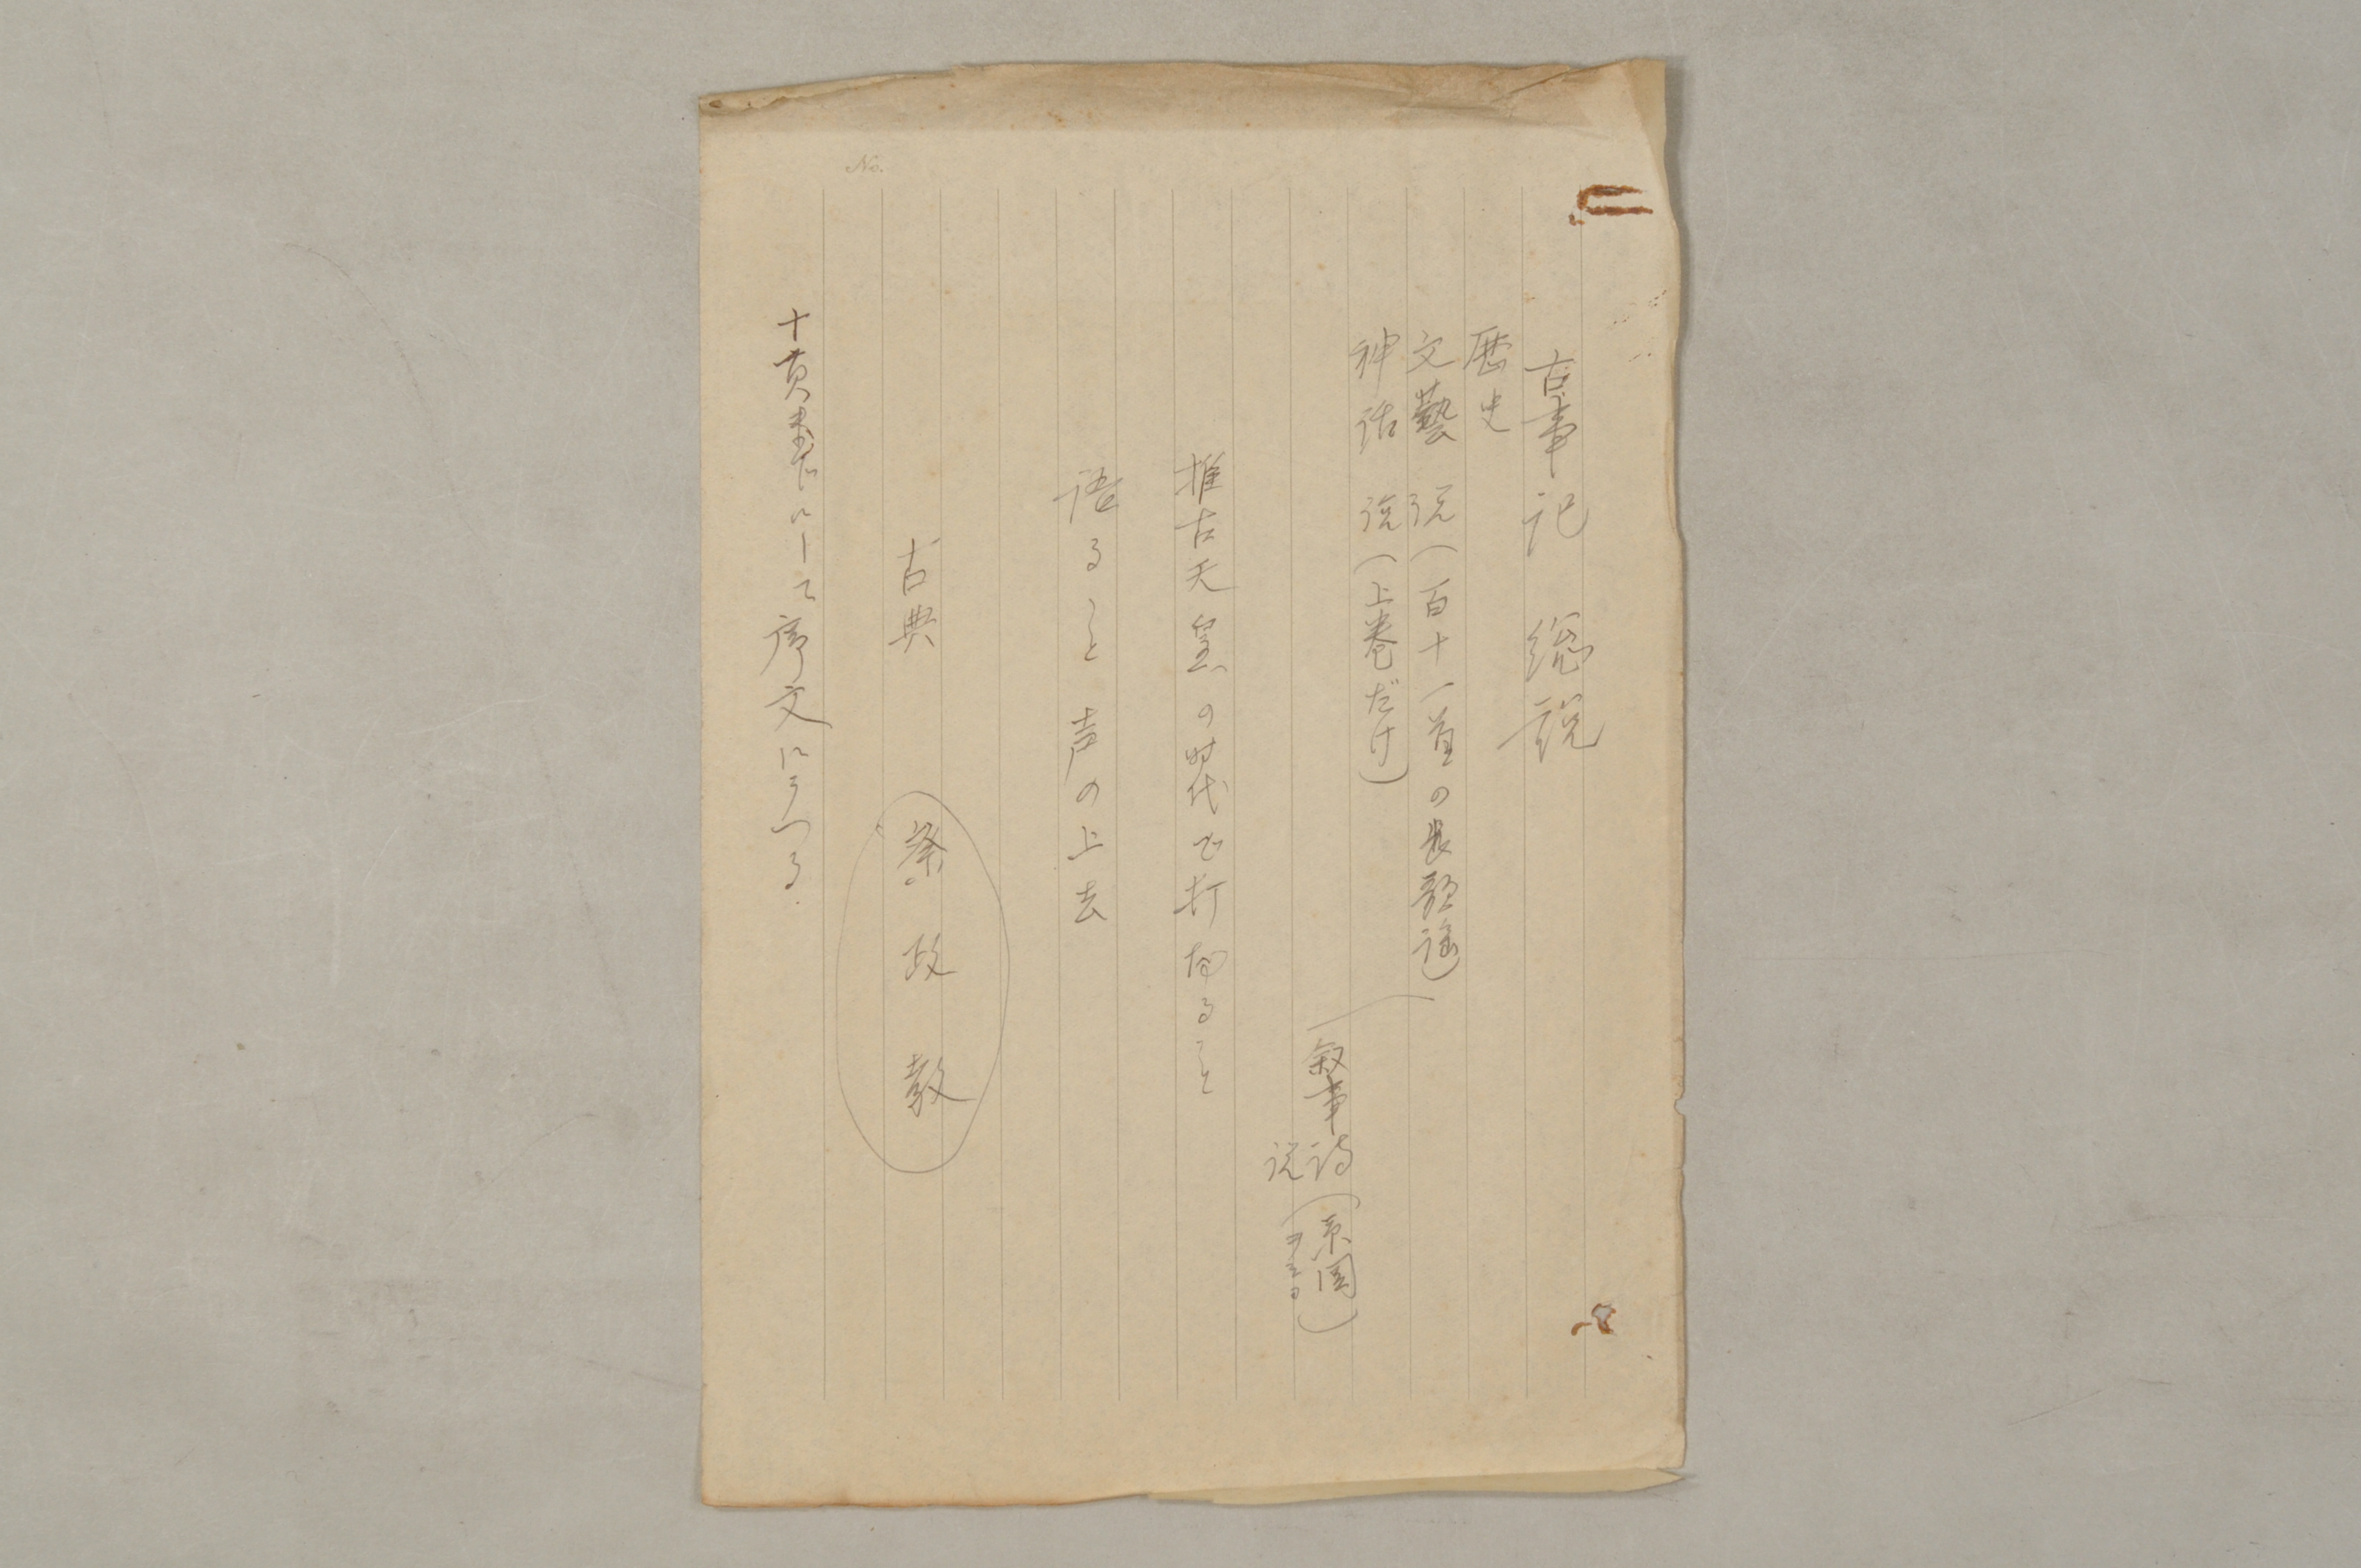 古事記 総説
歴史
文藝説(百十一首の長歌謡)
神話説(上巻だけ)
叙事詩(系図
説
推古天皇の時代で打切ること
語ること 声の上去
古典 祭政教
十頁までにして序文にうつる.
No.